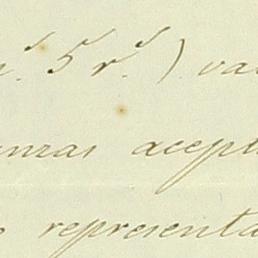 5 r.s) va
nzas acept
representa